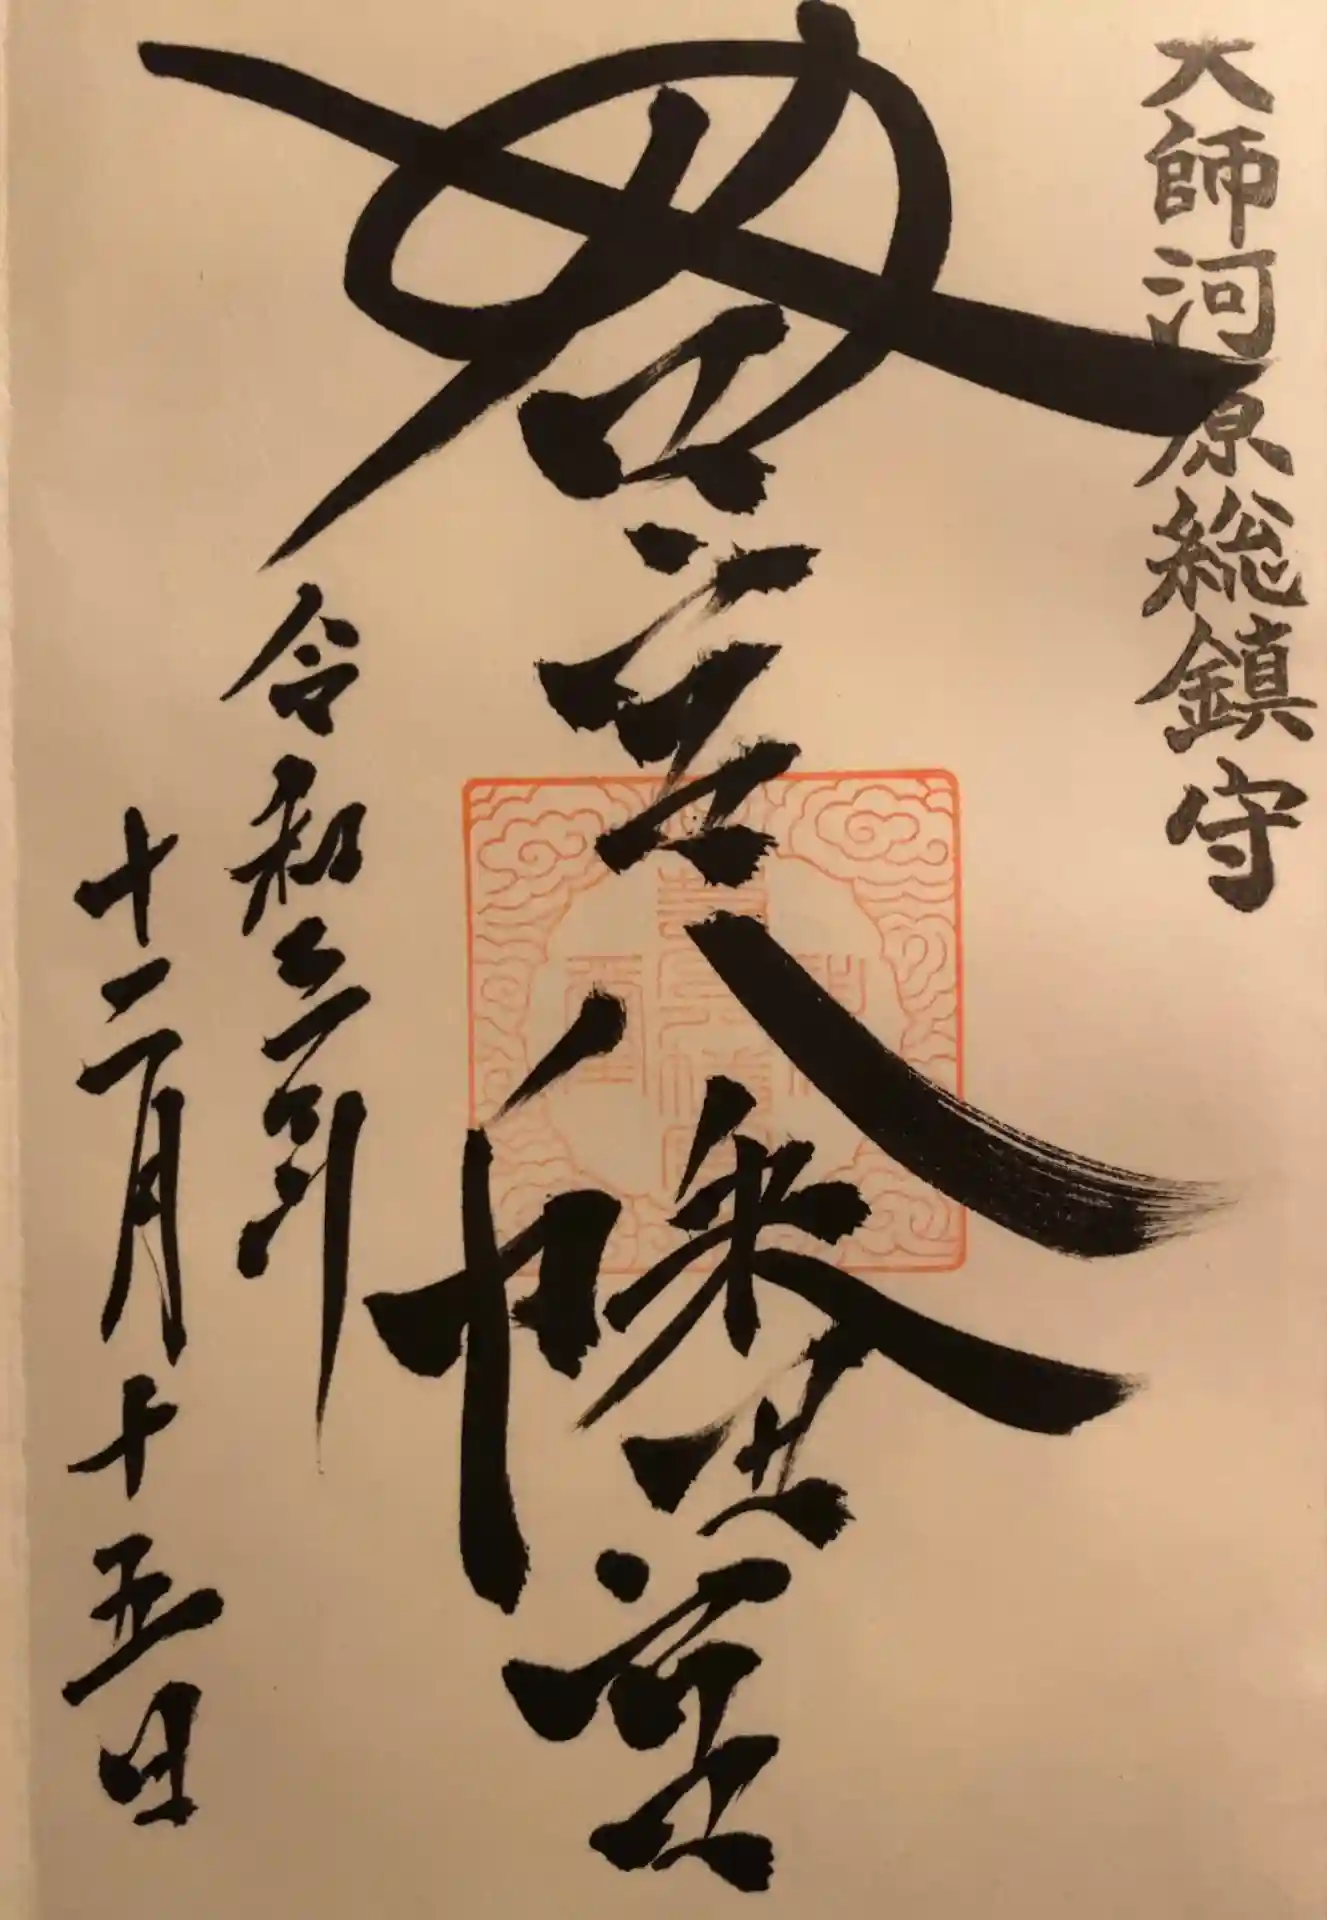 大師河原総鎮守
若宮八幡宮
令和三年
十二月十五日